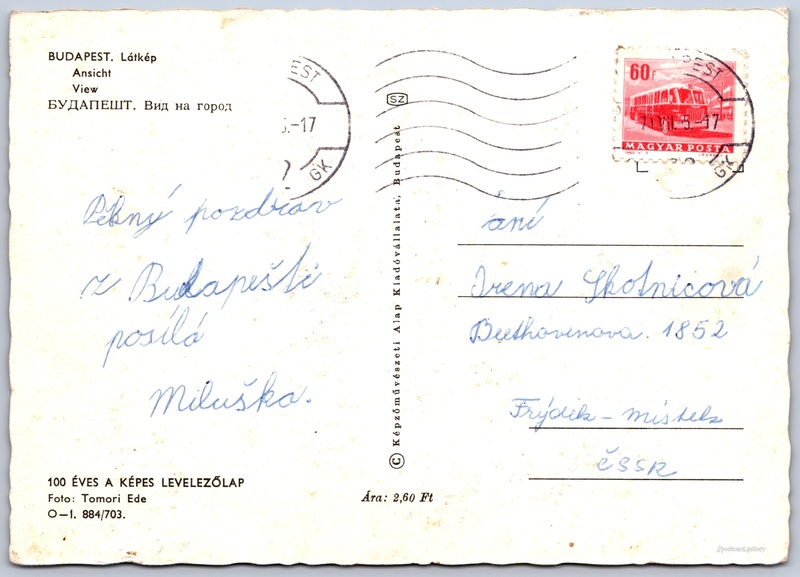 BUDAPEST. Látkép
Ansicht
View
БУДАПЕШТ. Вид на город
Pěkný pozdrav
z Budapešti
posílá
Miluška.
100 ÉVES A KÉPES LEVELEZŐLAP
Foto: Tomori Ede
O—I. 884/703.
EST
5.-17
GK
SZ
© Képzőművészeti Alap Kiadóvállalata, Budapest
Ára: 2,60 Ft
60f
MAGYAR POSTA
PEST
71 VII. 5.-17
GK
ání
Irena Skotnicová
Beethovenova 1852
Frýdek – místek
ČSSR
@postcard.gallery